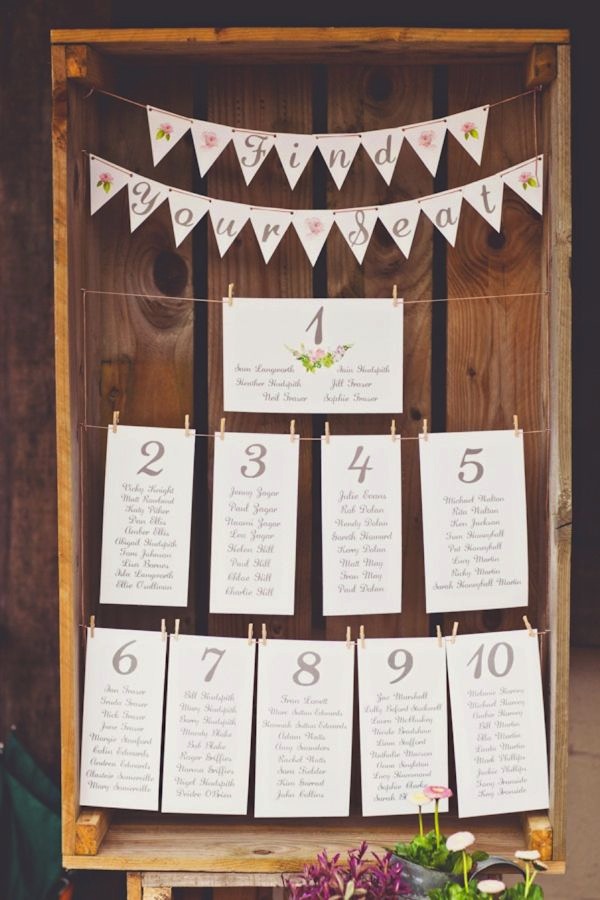 Find
Your Seat
1
Sam Langworth Iain Hudspith
Heather Hudspith Jill Fraser
Neil Fraser Sophie Fraser
2
Vicky Knight
Matt Rowland
Katy Pither
Dan Ellis
Amber Ellis
Abigail Hudspith
Tom Johnson
Lisa Barnes
Isla Langworth
Ellie O'sullivan
3
Jenny Zagar
Paul Zagar
Naomi Zagar
Lea Zagar
Helen Hill
Paul Hill
Chloe Hill
Charlie Hill
4
Julie Evans
Rob Dolan
Wendy Dolan
Gareth Howard
Kerry Dolan
Matt May
Fran May
Paul Dolan
5
Michael Halton
Rita Halton
Ken Jackson
Tom Honeyball
Pat Honeyball
Lucy Martin
Ricky Martin
Sarah Honeyball Martin
6
Ian Fraser
Linda Fraser
Nick Fraser
Jane Fraser
Margie Staniford
Colin Edwards
Andrea Edwards
Alastair Somerville
Mary Somerville
7
Bill Hudspith
Mary Hudspith
Barry Hudspith
Mandy Blake
Bob Blake
Roger Griffies
Marion Griffies
Nigel Hudspith
Deidre O'Brien
8
Fran Lovett
Marc Sutton Edwards
Hannah Sutton Edwards
Adam Batten
Amy Saunders
Rachel Watts
Sara Fielder
Kim Gerrard
John Collins
9
Zoe Marshall
Dolly Boford Stockwell
Laura McCluskey
Nicola Bradshaw
Liam Stafford
Natalie Mawson
Anna Singleton
Lucy Hammond
Sophie Charles
Sarah
10
Melanie Harvey
Michael Harvey
Amber Harvey
Bill Martin
Ella Martin
Linda Martin
Mark Phillips
Jackie Phillips
Tony Ironside
Kay Ironside